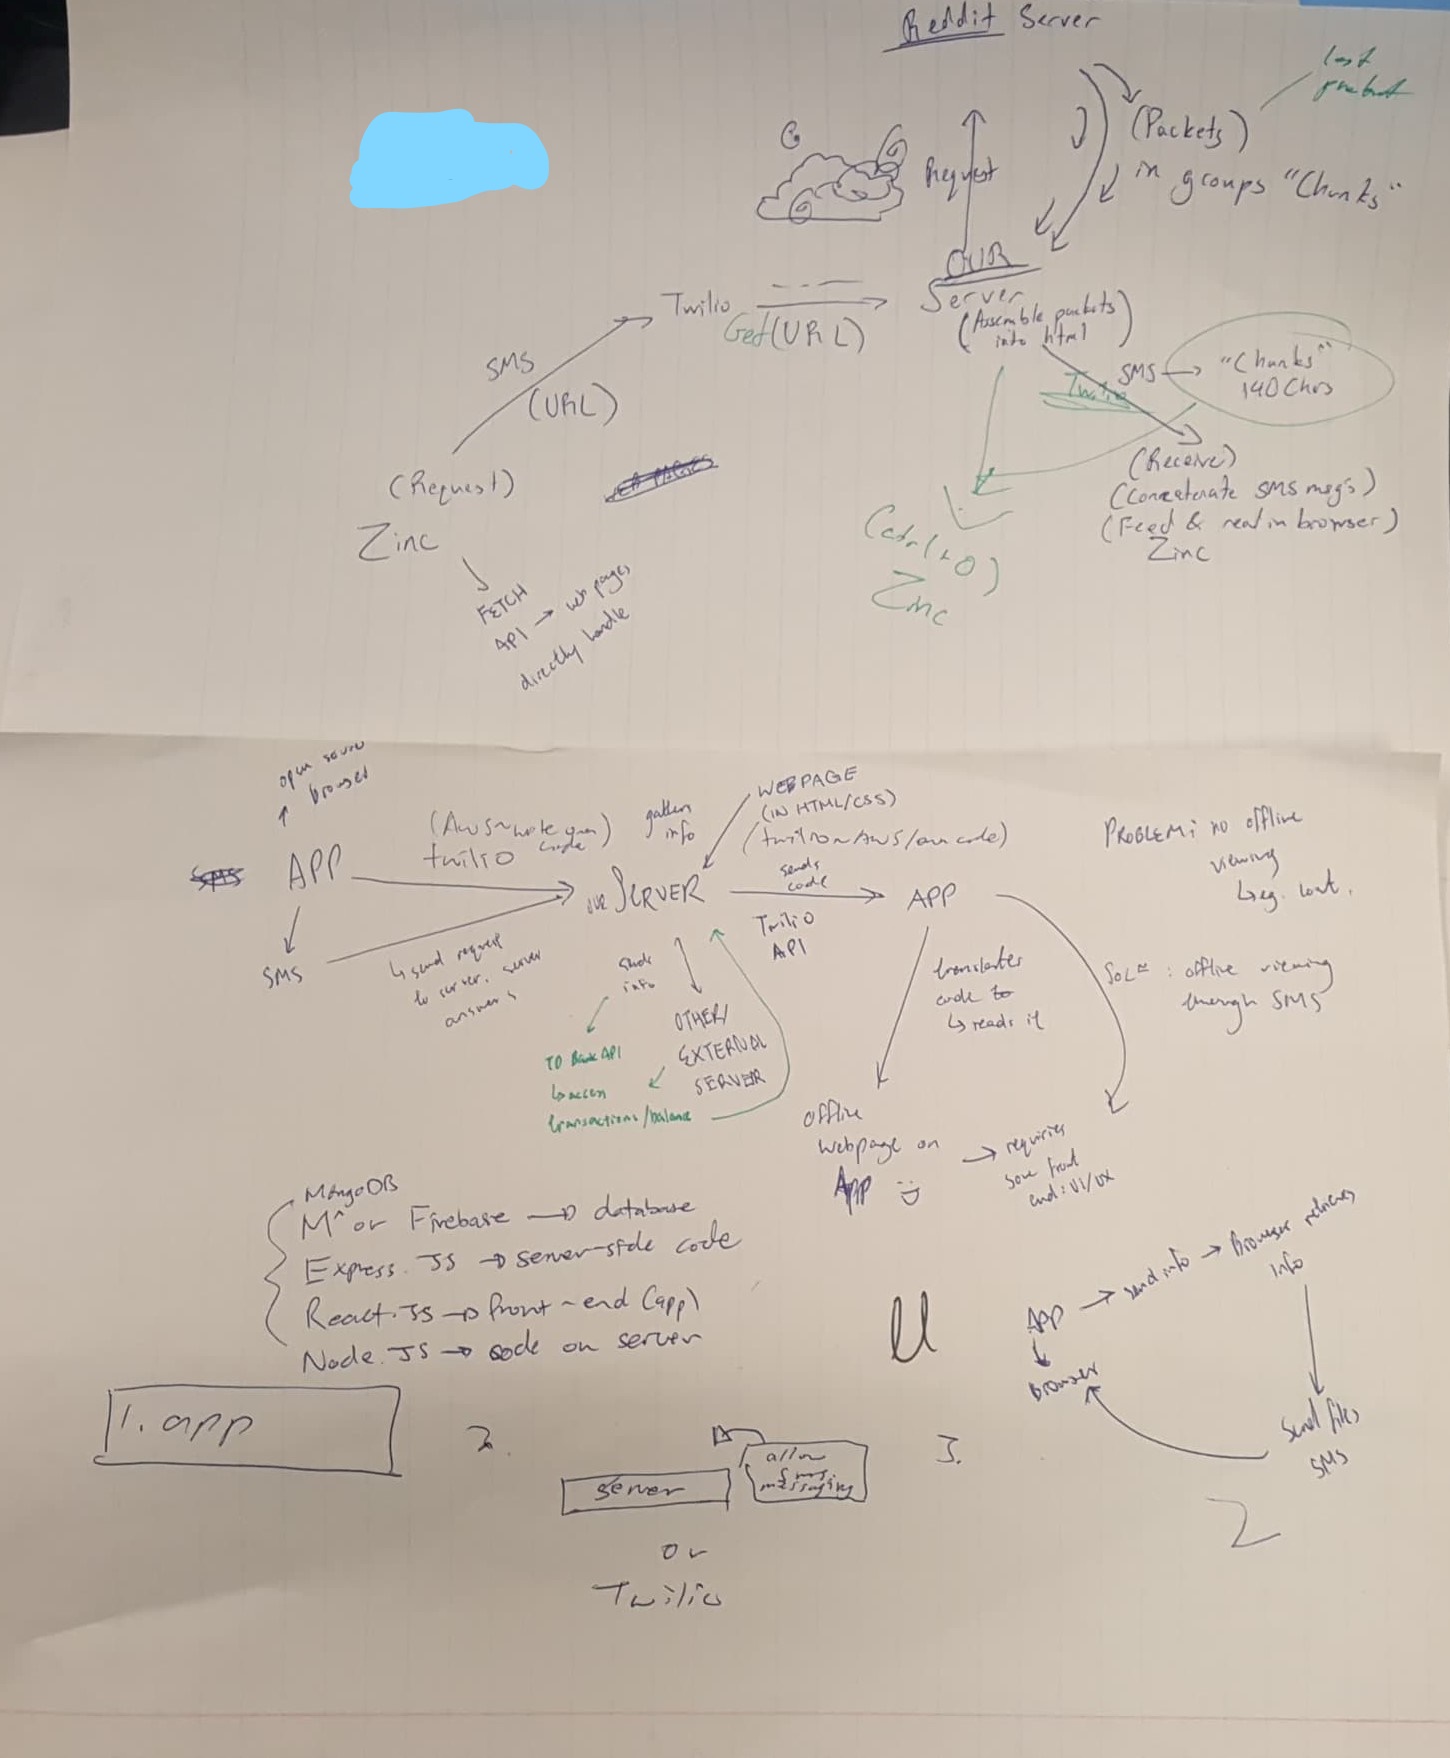 Reddit Server
last
(Packets)
in groups "Chunks"
Request
OUR
Server
(Assemble packets
into html)
Twilio
Get(URL)
SMS
(URL)
SMS → "Chunks"
140 Chrs
Twilio
(Request)
Zinc
(Receive)
(Concatenate SMS msg's)
(Feed & read in browser)
Zinc
Zinc
FETCH
API → web pages
directly handle
open source
browser
APP
SMS
twilio code
gather
info
WEBPAGE
(IN HTML/CSS)
(twilio~AWS/our code)
our SERVER
sends
code
Twilio
API
APP
↳ send request
to server. server
answers
info
TO Bank API
↳ access
transactions/balance
OTHER/
EXTERNAL
SERVER
translates
code to
↳ reads it
PROBLEM: no offline
viewing
↳ eg.
: offline viewing
through SMS
offline
webpage on
App
→ requires
some front
end: UI/UX
MongoDB
M^ or Firebase → database
Express.JS → server-side code
React.JS → front-end (app)
Node.JS → code on server
App → send info → Browser retrieves
info
Browser
Send files
SMS
1. app
2.
server
allow
sms
messaging
or
Twilio
3.
2